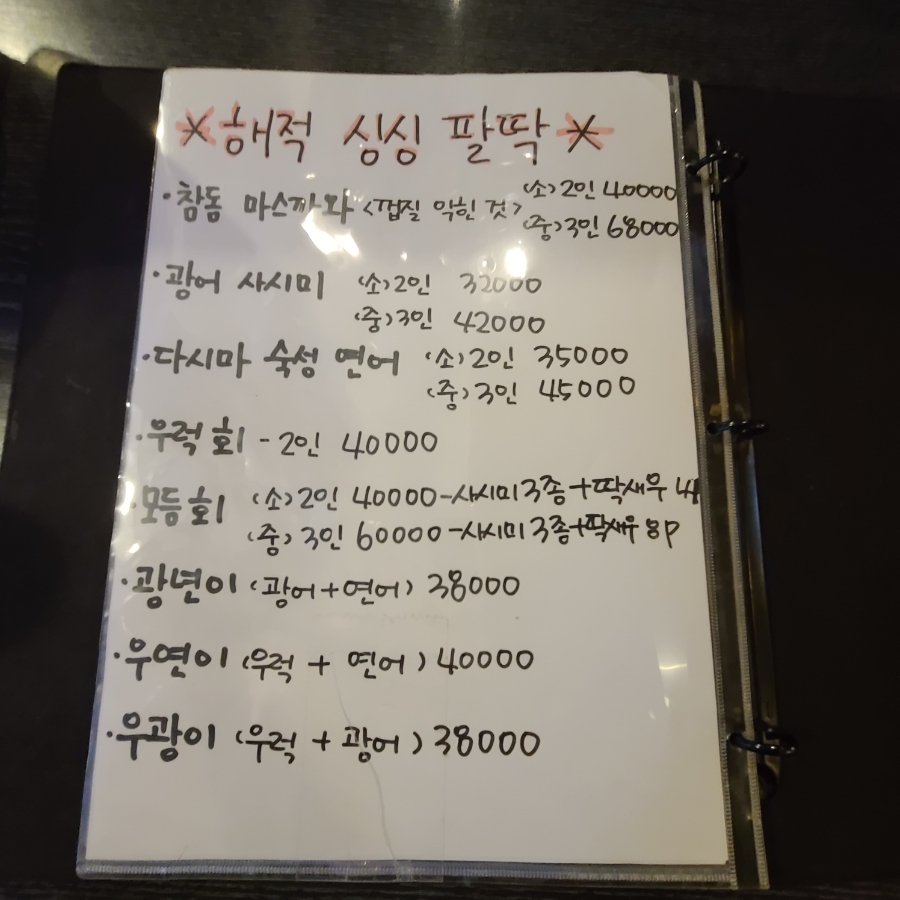 *해적 싱싱 팔딱*
·참돔 마스까와 <껍질 익힌 것> (소)2인 40000
(중)3인 68000
·광어 사시미 (소)2인 32000
(중)3인 42000
·다시마 숙성 연어 (소)2인 35000
(중)3인 45000
·우럭 회 - 2인 40000
·모듬회 (소)2인 40000-사시미3종+딱새우
(중)3인 60000-사시미3종+딱새우 8P
·광년이 (광어+연어) 38000
·우연이 (우럭 + 연어) 40000
·우광이 (우럭 + 광어) 38000